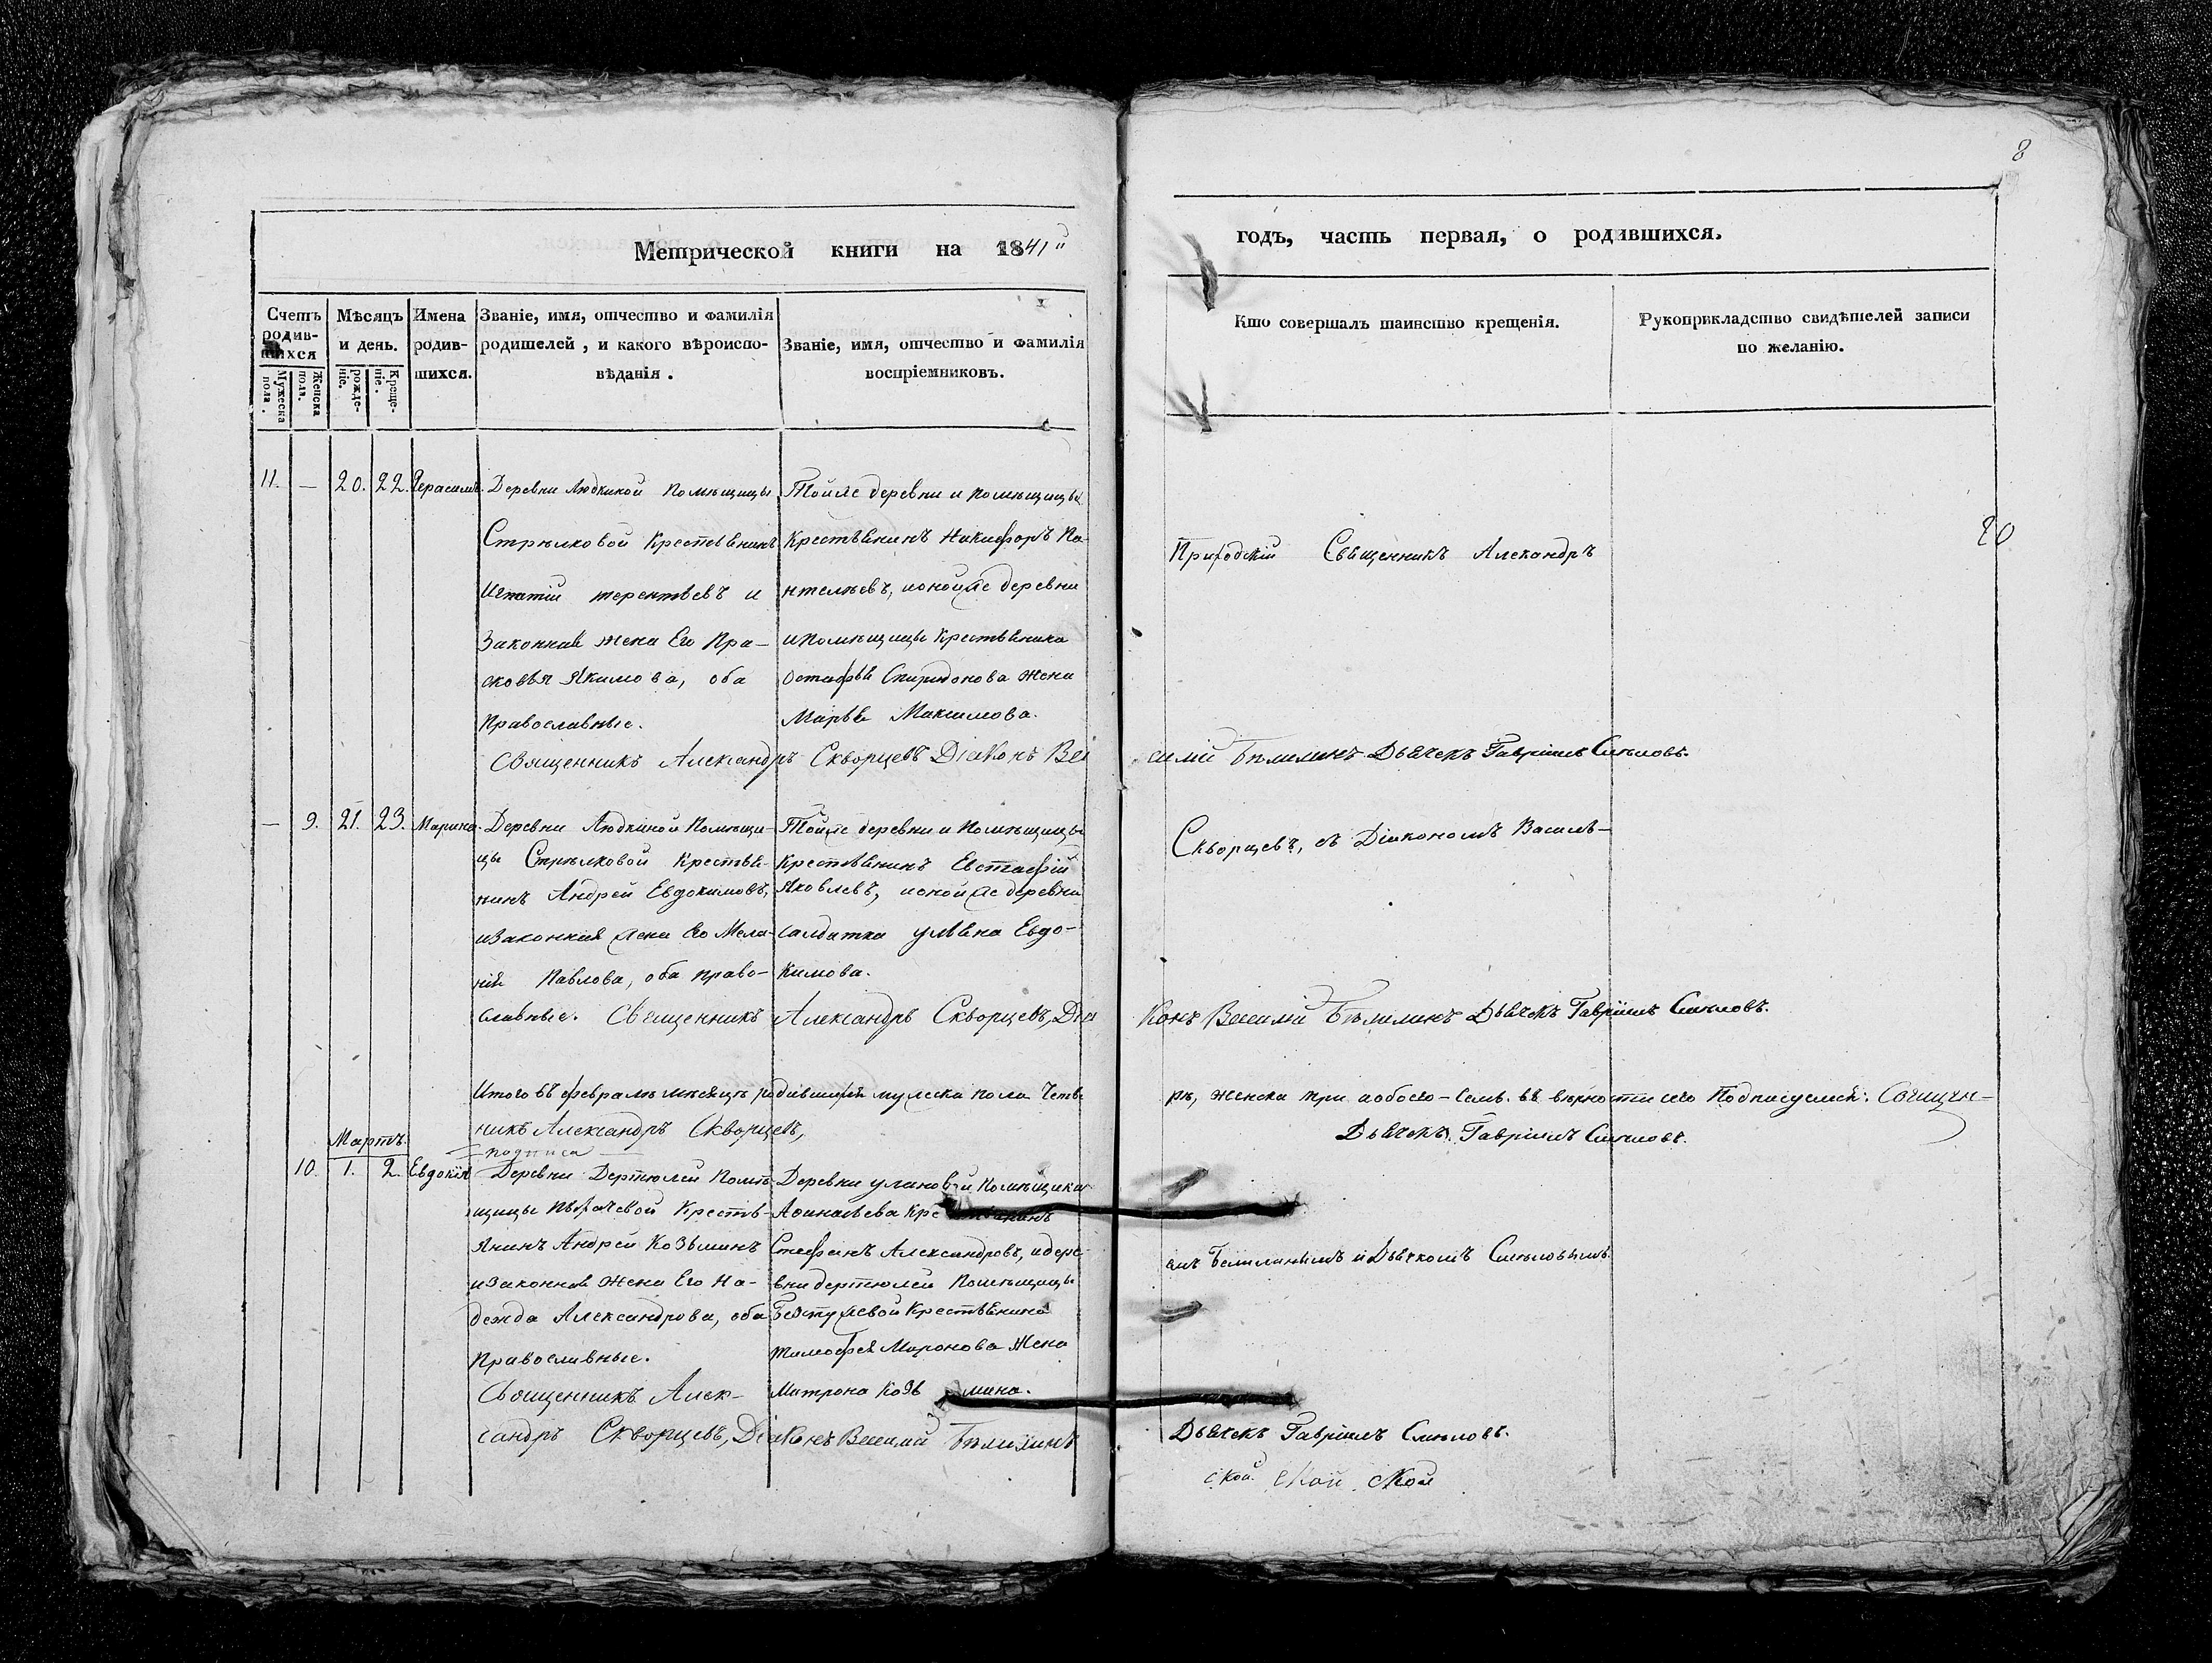 8
Метрической книги на 1841й
годъ, часть первая, о родившихся.
Счетъ родившихся
Мужеска пола.
Женска пола.
Мѣсяцъ и день.
рожденіе.
Крещеніе.
Имена родившихся.
Званіе, имя, отчество и фамилія
родителей, и какого вѣроиспо-
вѣданія.
Званіе, имя, отчество и фамилія
воспріемниковъ.
Кто совершалъ таинство крещенія.
Рукоприкладство свидѣтелей записи
по желанію.
11. — 20. 22. Герасимъ.
Деревни Людкиной Помѣщицы
Стрѣлковой Крестьянинъ
Игнатій терентьевъ и
Законная жена Его Пра-
сковья Якимова, оба
Православные.
Тойже деревни и помѣщицы
Крестьянинъ Никифоръ Па-
нтелѣевъ, ионойже деревни
ипомѣщицы Крестьянина
Остафья Спиридонова Жена
Марья Максимова.
Приходскій Священникъ Александръ
20
Священникъ Александръ Скворцевъ Діаконъ Ва
силій Бѣлилинъ Дьячекъ Гавріилъ Смѣловъ.
— 9. 21. 23. Марина.
Деревни Людкиной Помѣщи-
цы Стрѣлковой Крестья-
нинъ Андрей Евдокимовъ,
изаконная жена Его Мела-
нія Павлова, оба право-
славные.
Тойже деревни и Помѣщицы
Крестьянинъ Евстафій
Яковлевъ, ионойже деревни
салдатка ульяна Евдо-
кимова.
Скворцевъ, съ Діакономъ Василь-
Священникъ Александръ Скворцевъ, Діа
конъ Василій Бѣлилинъ Дьячекъ Гавріилъ Смѣловъ.
Итого въ февралѣ мѣсяцѣ родившихся мужеска пола Четы
рѣ, женска три аобоего – семь. въ вѣрности сего Подписуемся: Священ-
никъ Александръ Скворцевъ,
Дьячекъ Гавріилъ Смѣловъ.
подписа
Мартъ.
10. 1. 2. Евдокія
Деревни Дертюлей Помѣ-
щицы Крестья-
янинъ Андрей Козьминъ
изаконная Жена Его На-
дежда Александрова, оба
Православные.
Деревни улановой Помѣщика
Аѳинаѣева Крестьянинъ
Стефанъ Александровъ, идере-
вни дертюлей Помѣщицы
Бестужевой Крестьянина
тимофея Миронова Жена
Матрона Козьмина.
емъ Белилинымъ иДьячкомъ Смѣловымъ
Священникъ Алек-
сандръ Скворцевъ, Діаконъ Василій Бѣлилинъ
Дьячекъ Гавріилъ Смѣловъ.
ской. ской ской